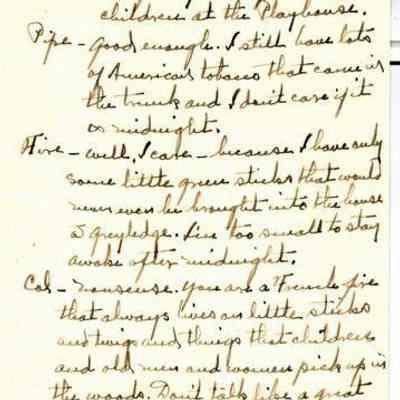 children at the Playhouse.
Pipe - good enough. I still have lots
of American tobacco that came in
the trunk and I don't care if it
is midnight.
Fire - well, I care - because I have only
some little green sticks that would
never even be brought into the house
Greyledge. I'm too small to stay
awake after midnight.
Cal - nonsense. You are a French fire
that always lives on little sticks
and twigs and things that children
and old men and women pick up in
the woods. Don't talk like a great